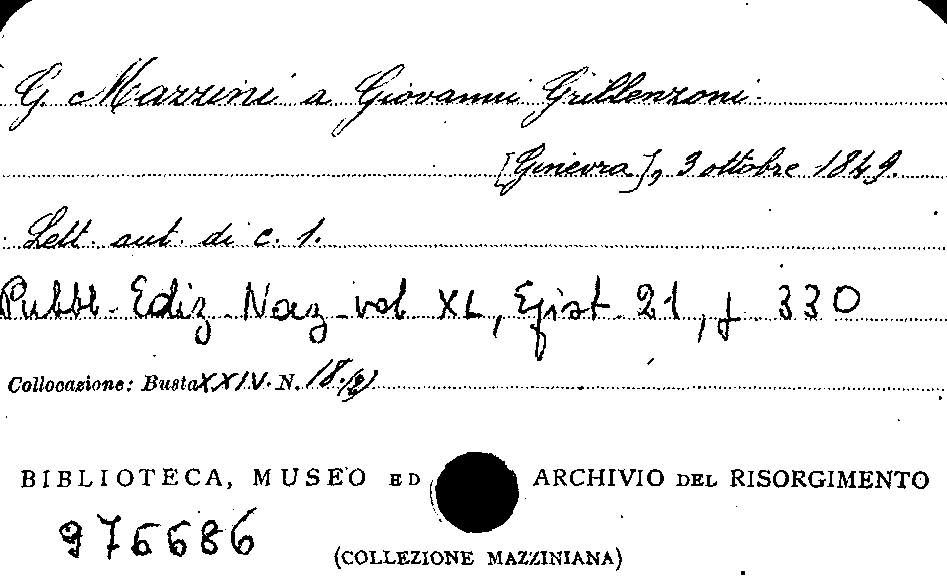 G. Mazzini a Giovanni Grillenzoni.
[Ginevra], 3 ottobre 1849.
Lett. aut. di c. 1.
Pubbl. Ediz. Naz. vol XL, Epist. 21, p. 330
Collocazione: Busta XXIV. N. 18/
BIBLIOTECA, MUSEO ED ARCHIVIO DEL RISORGIMENTO
976686
(COLLEZIONE MAZZINIANA)